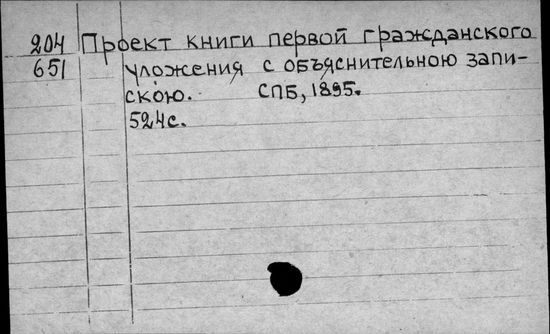 204 Проект книги первой гражданского
651 уложения с объяснительною запи-
скою. СПБ, 1895.
524с.